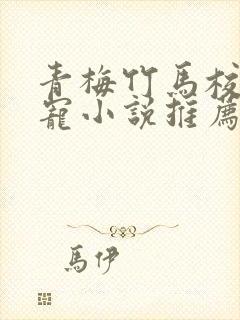 青梅竹馬校
寵小説推薦
馬伊